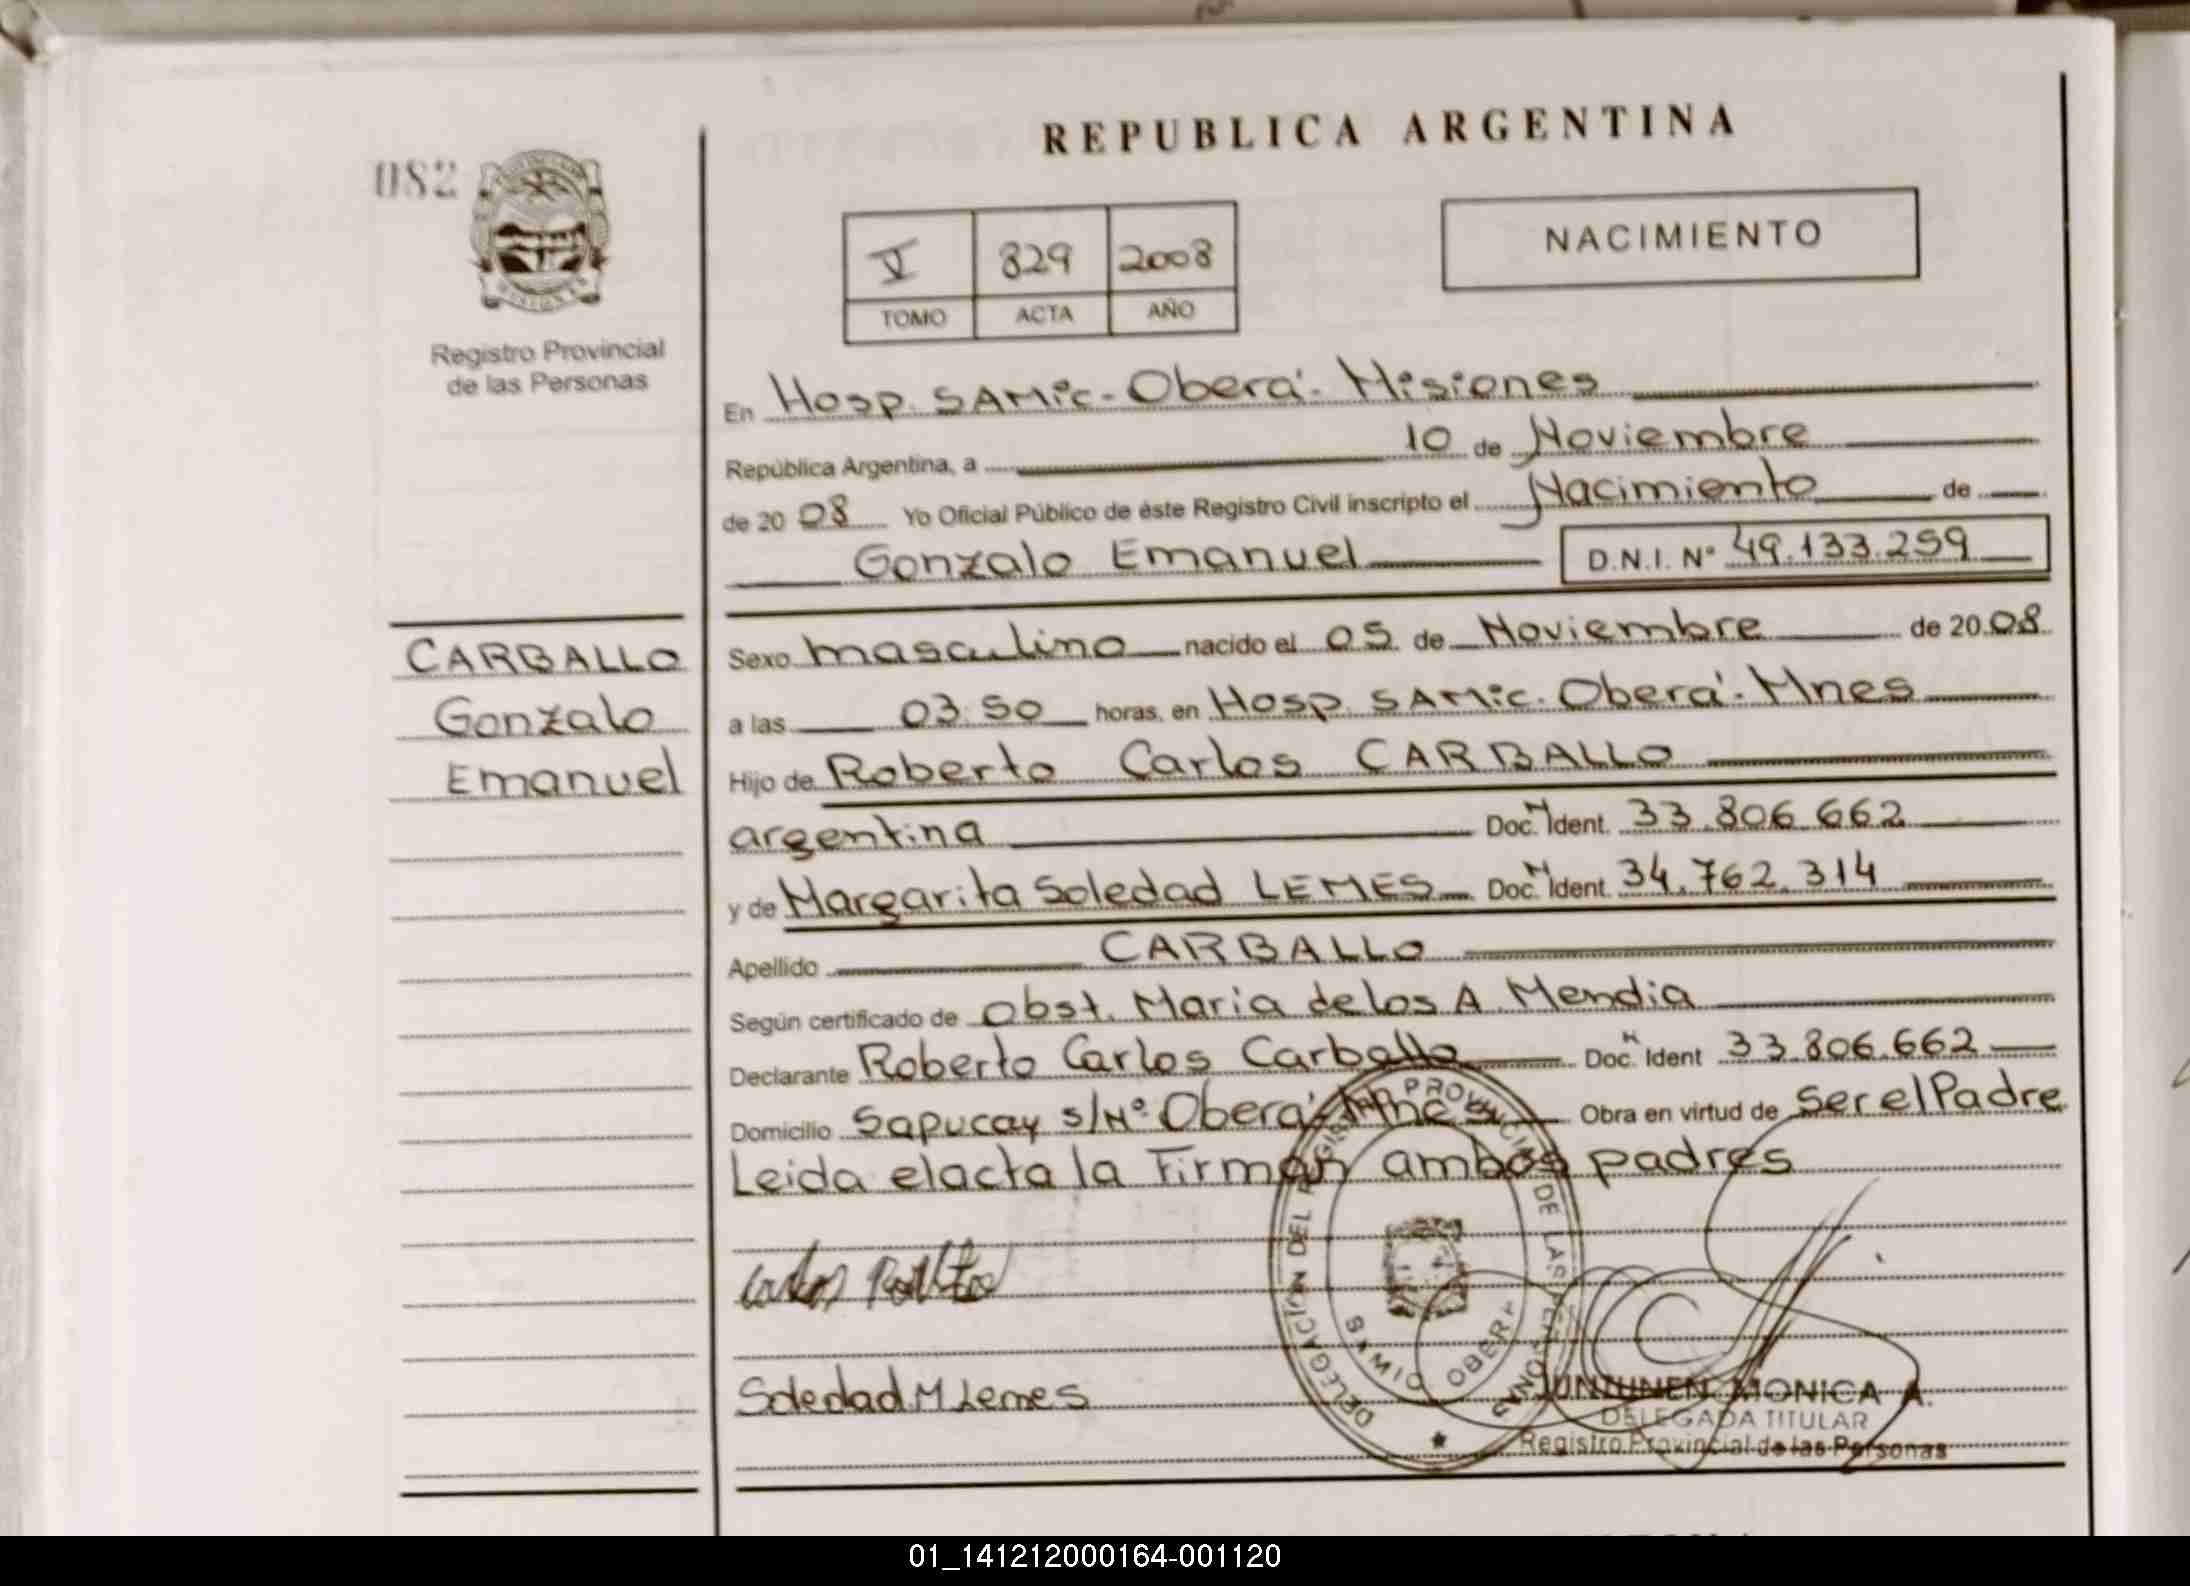 REPUBLICA ARGENTINA
082
V 829 2008
TOMO ACTA AÑO
NACIMIENTO
Registro Provincial
de las Personas
En Hosp. SAMic - Oberá - Misiones
República Argentina, a 10 de Noviembre
de 20 08 Yo Oficial Público de éste Registro Civil inscripto el Nacimiento de
Gonzalo Emanuel D.N.I. Nº 49.133.259
CARBALLO
Gonzalo
Emanuel
Sexo masculino nacido el 05 de Noviembre de 20 08
a las 03.50 horas, en Hosp. SAMic. Oberá - Mnes
Hijo de Roberto Carlos CARBALLO
argentina Doc. N Ident. 33.806.662
y de Margarita Soledad LEMES Doc. N Ident. 34.762.314
Apellido CARBALLO
Según certificado de Obst. Maria de los A. Mendia
Declarante Roberto Carlos Carballo Doc. N Ident 33.806.662
Domicilio Sapucay s/Nº Oberá - Mnes Obra en virtud de Ser el Padre
Leida el acta la Firman ambos padres
Carlos
Soledad M Lemes
DELEGACIÓN DEL REGISTRO PROVINCIAL DE LAS PERSONAS
OBERA
JUNTUNEN MONICA A.
DELEGADA TITULAR
Registro Provincial de las Personas
01_141212000164-001120